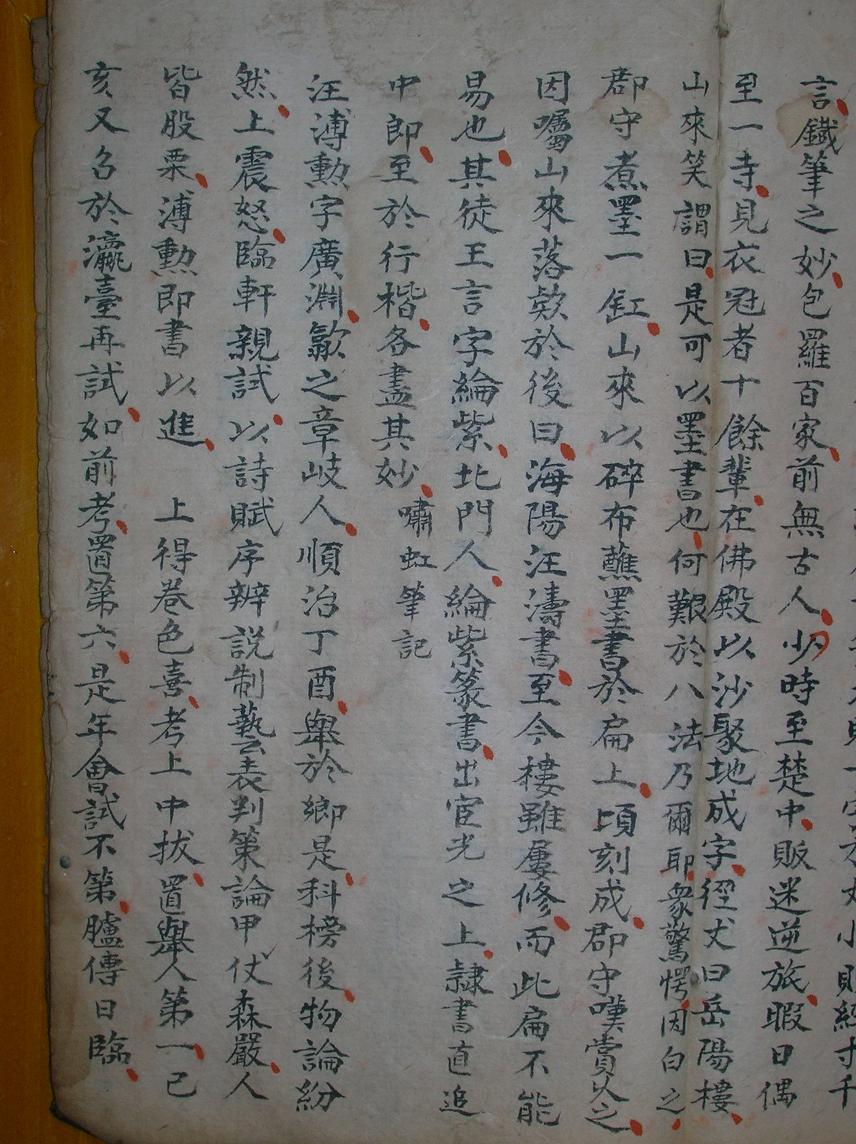 言鐵筆之妙包羅百家前無古人少時至楚中販迷逆旅暇日偶
至一寺見衣冠者十餘輩在佛殿以沙聚地成字徑丈曰岳陽樓
山來笑謂曰是可以墨書也何艱於八法乃爾耶衆驚愕因白之
郡守煮墨一缸山來以碎布蘸墨書於扁上頃刻成郡守嘆賞久之
因囑山來落欵於後曰海陽汪濤書至今樓雖屢修而此扁不能
易也其徒王言字綸紫北門人綸紫篆書出宦光之上隷書直追
中郎至於行楷各盡其妙 嘯虹筆記
汪溥勳字廣淵歙之章岐人順治丁酉舉於鄉是科榜後物論紛
然上震怒臨軒親試以詩賦序辨說制藝表判策論甲仗森嚴人
皆股栗溥勳即書以進 上得卷色喜考上中拔置舉人第一己
亥又召於瀛臺再試如前考置第六是年會試不第臚傳日臨